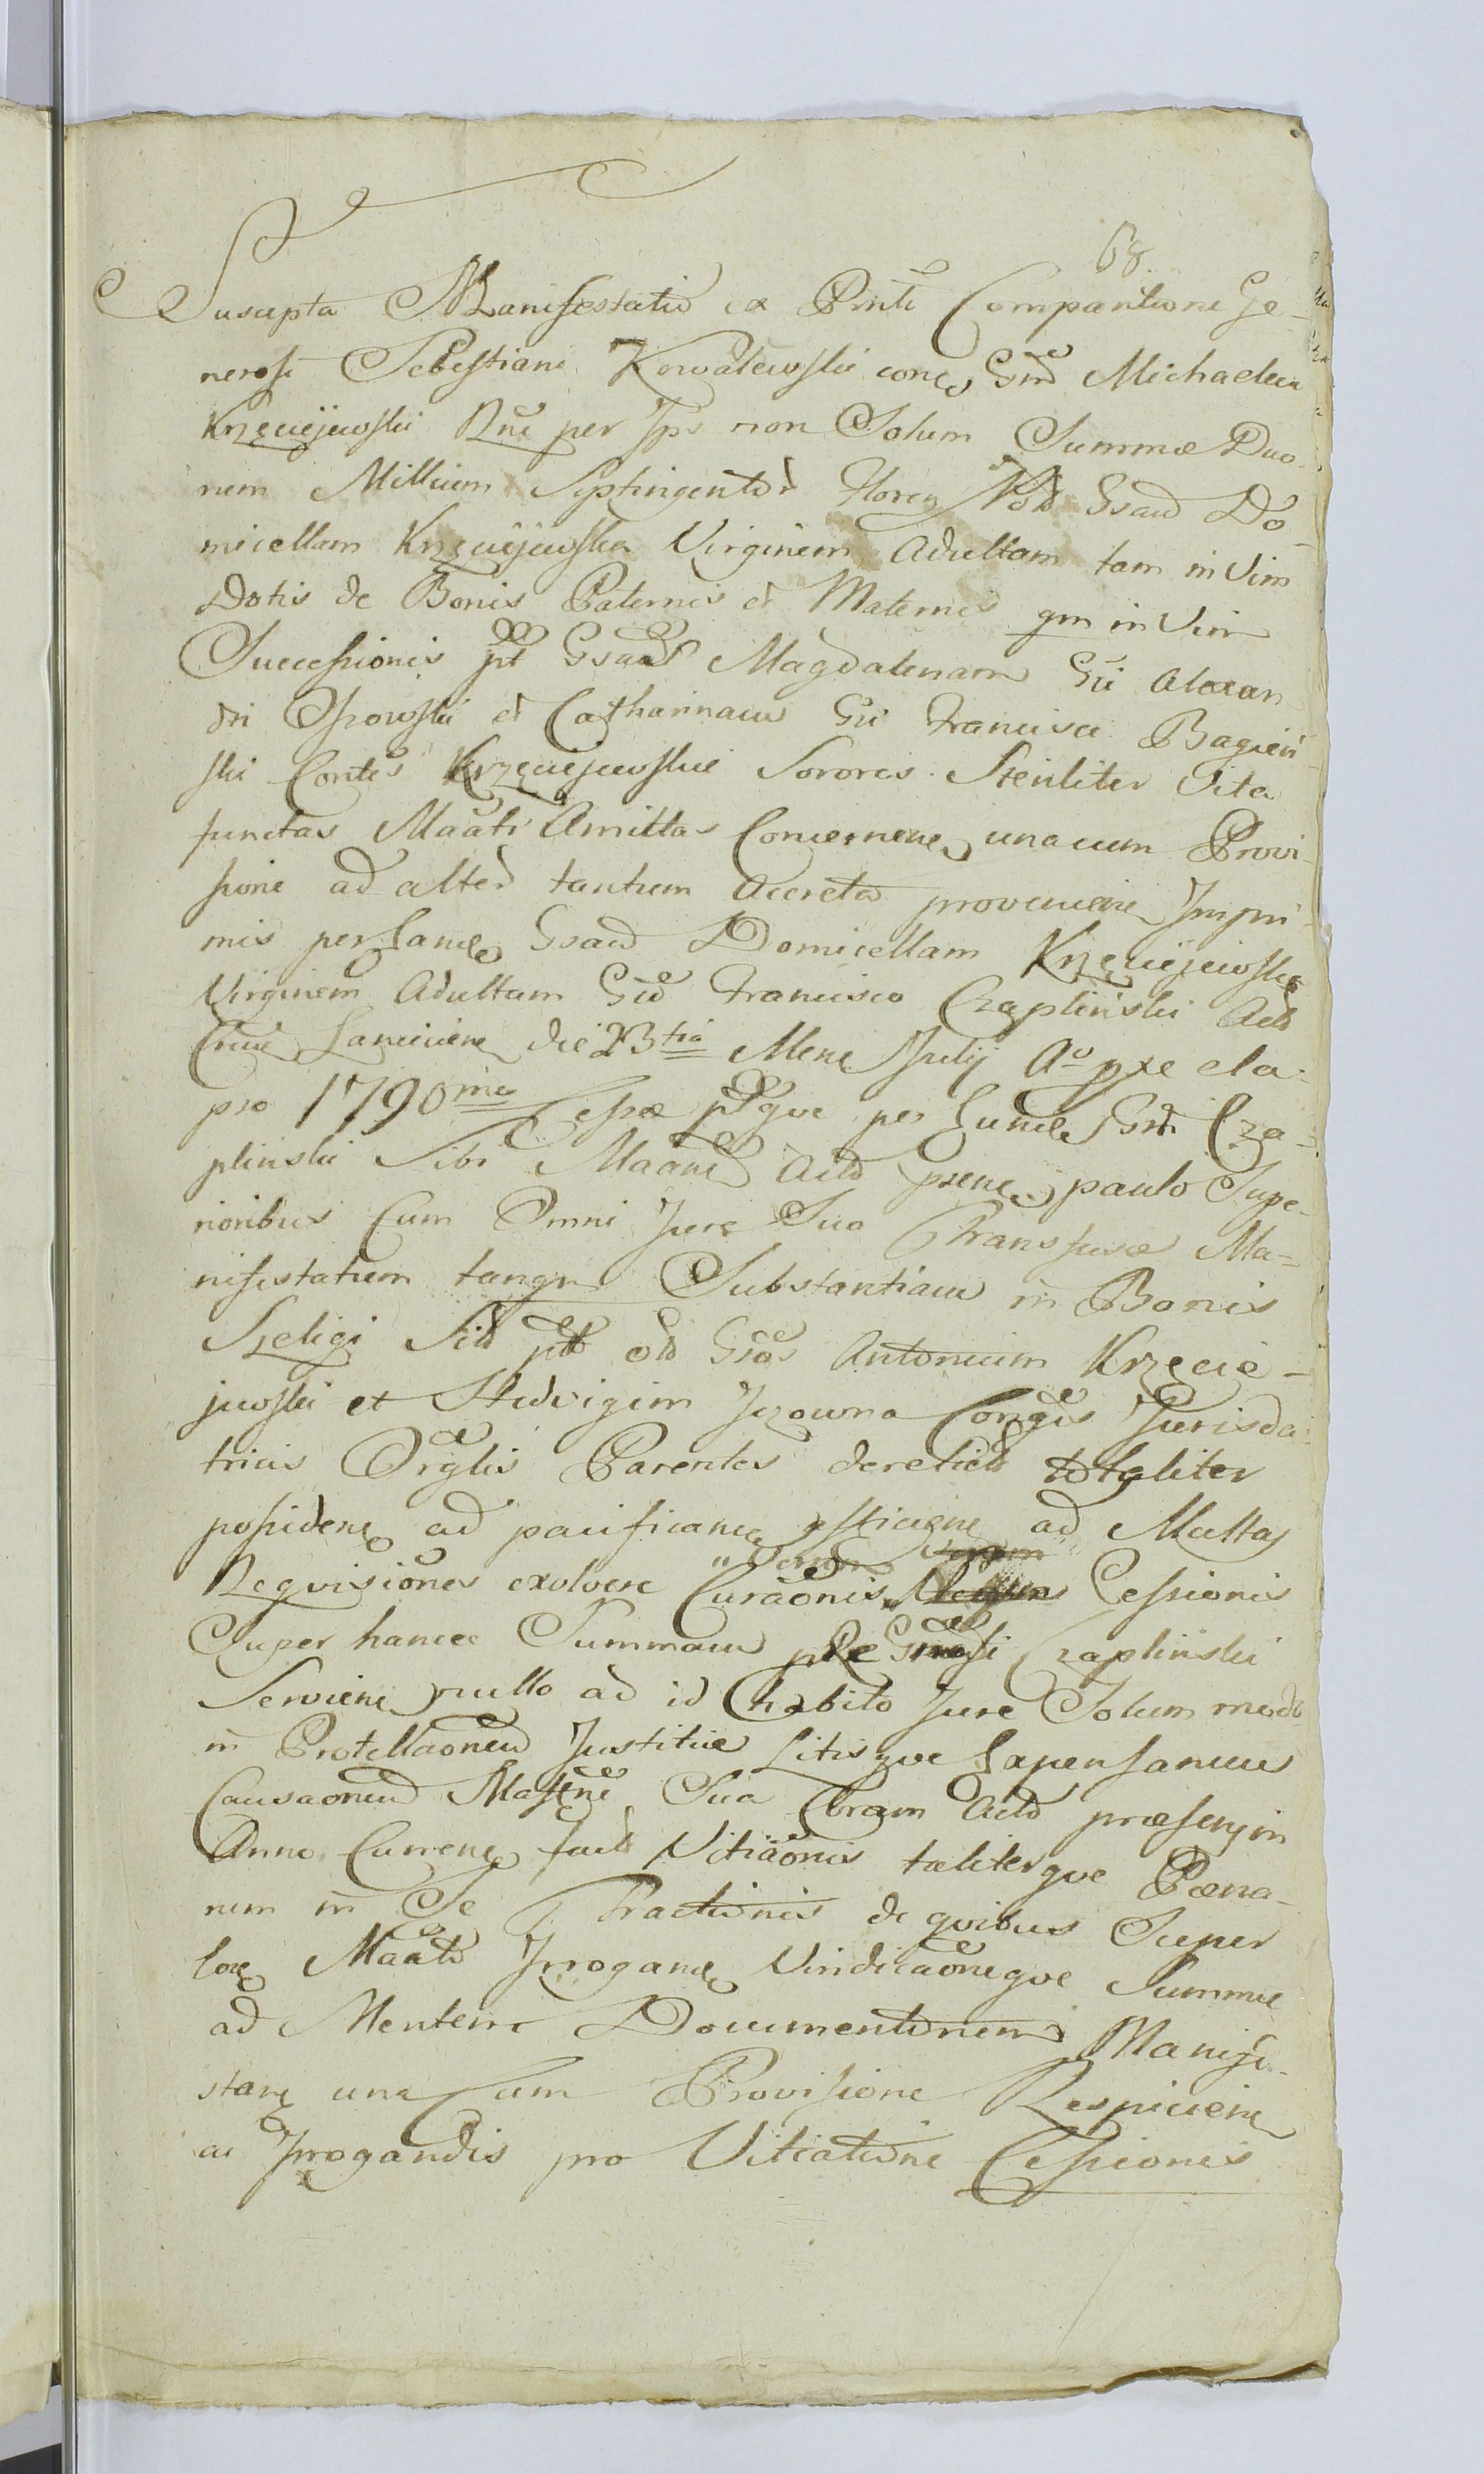 68
Suscepta Manifestatio ex Pnti Comparitione Ge-
nerosi Sebestiani Kowalewski conc. Gm Michaelem
Krzęciejewski Rne per Ips non Solum Summæ Duo-
rum Millium Septingentor Floren Pol Gsam Do-
micellam Krzęciejewska Virginem Adultam tam in Vim
Dotis de Bonis Paternis et Maternis qm in Vim
Successionis pt Gsas Magdalenam Gsi Alexan
dri et Catharinam Gsi Francisci Bagień
ski Contes Krzęciejewskie Sorores Steriliter Vita
functas Maati Amittas Concernene unacum Provi-
sione ad alter tantum Accreta proveniene Impri-
mis per Eande Gsam Domicellam Krzęciejewska
Virginem Adultam Gso Francisco Czapliński Actis
Crae Lancicien die 23tia Mene Julij Ao pxe ela-
pso 1790mo Cessæ pque per Eunde Gsm Cza-
plinski Sibi Maane Actis psene paulo Supe-
rioribus Cum Omni Jure Suo Transfusæ Ma-
nifestatum tanqm Substantiam in Bonis
Szeligi Sib pt ob Gsos Antonium Krzęcie-
jewski et Hedvigim Jezowna Conges Jurisda-
trices Orglis Parentes derelict totaliter
possidene ad pacificane efficiene ad Multas
Requisiones exolvere Curaonis Cessionis
Super hancce Summam pxe Gnosi Czapliński
Serviene nullo ad id habito Jure Solum modo
in Protellaonem Justitiæ Litisque Expensarum
Causaonem Sua Coram Actis præsen in
Anno Currene fact Vitiaonis taliterque Pæna-
rum in Se Tractionis de quibus Super
lore Maats Irrogane Vindicaoneque Summæ
ad Mentem Documentorum Manife-
stane una Cum Provisione Respiciene
ac Irrogandis pro Vitiatione Cessionis